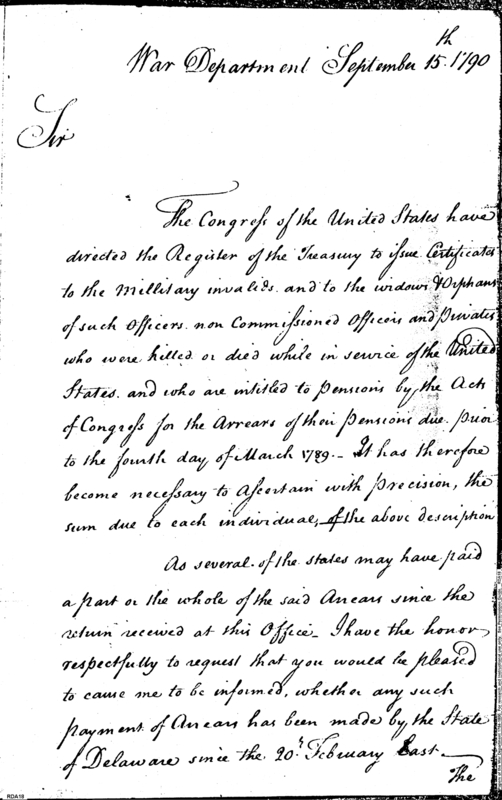 War Department September 15.th 1790
Sir
The Congress of the United States have
directed the Register of the Treasury to issue Certificates
to the Millitary invalids. and to the widows & Orphans
of such Officers. non Commissioned Officers and Privates
who were killed or died while in service of the United
States. and who are intitled to Pensions by, the Acts
of Congress for the Arrears of their Pensions due. prior
to the fourth day of March 1789.- It has therefore
become necessary to Ascertain with Precision, the
sum due to each individual, of the above description
As several. of the states may have paid
a part or the whole of the said Arrears since the
return received at this Office - I have the honor,
respectfully to request that you would be pleased
to cause me to be informed, whether any such
payment of Arrears has been made by, the State
of Delaware since the 20.t February East.-
The
RDA19